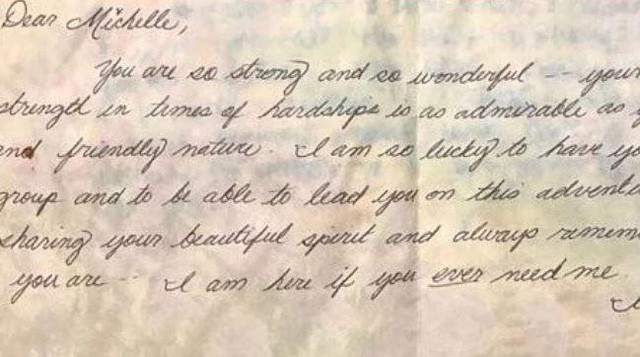 Dear Michelle,
You are so strong and so wonderful -- your
strength in times of hardships is as admirable as
and friendly nature. I am so lucky to have yo
group and to be able to lead you on this advent
sharing your beautiful spirit and always remem
you are -- I am here if you ever need me.